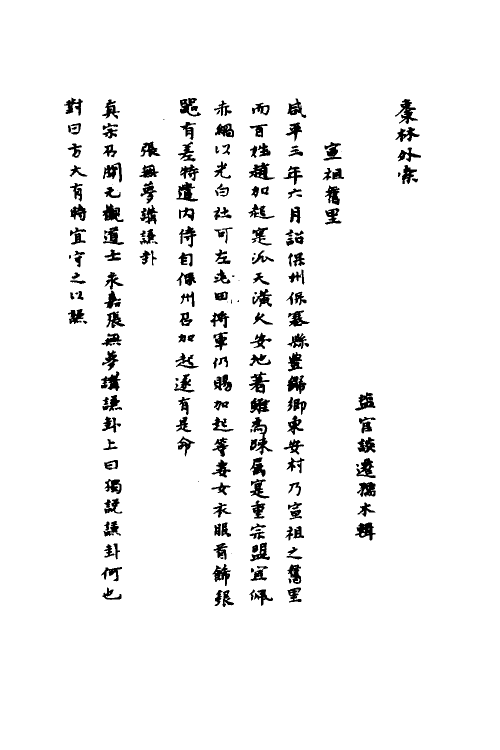 棗林外索
鹽官談遷孺木輯
宣祖舊里
咸平三年六月詔保州保塞縣豊歸鄉東安村乃宣祖之舊里
而百姓趙加起寔派天潢久安地著雖為踈屬寔重宗盟宜佩
赤紱以光白社可左屯田將軍仍賜加起等妻女衣服首飾銀
器有差特遣內侍自保州召加起遂有是命
張無夢講謙卦
真宗召開元觀道士永嘉張無夢講謙卦上曰獨說謙卦何也
對曰方大有時宜守之以謙